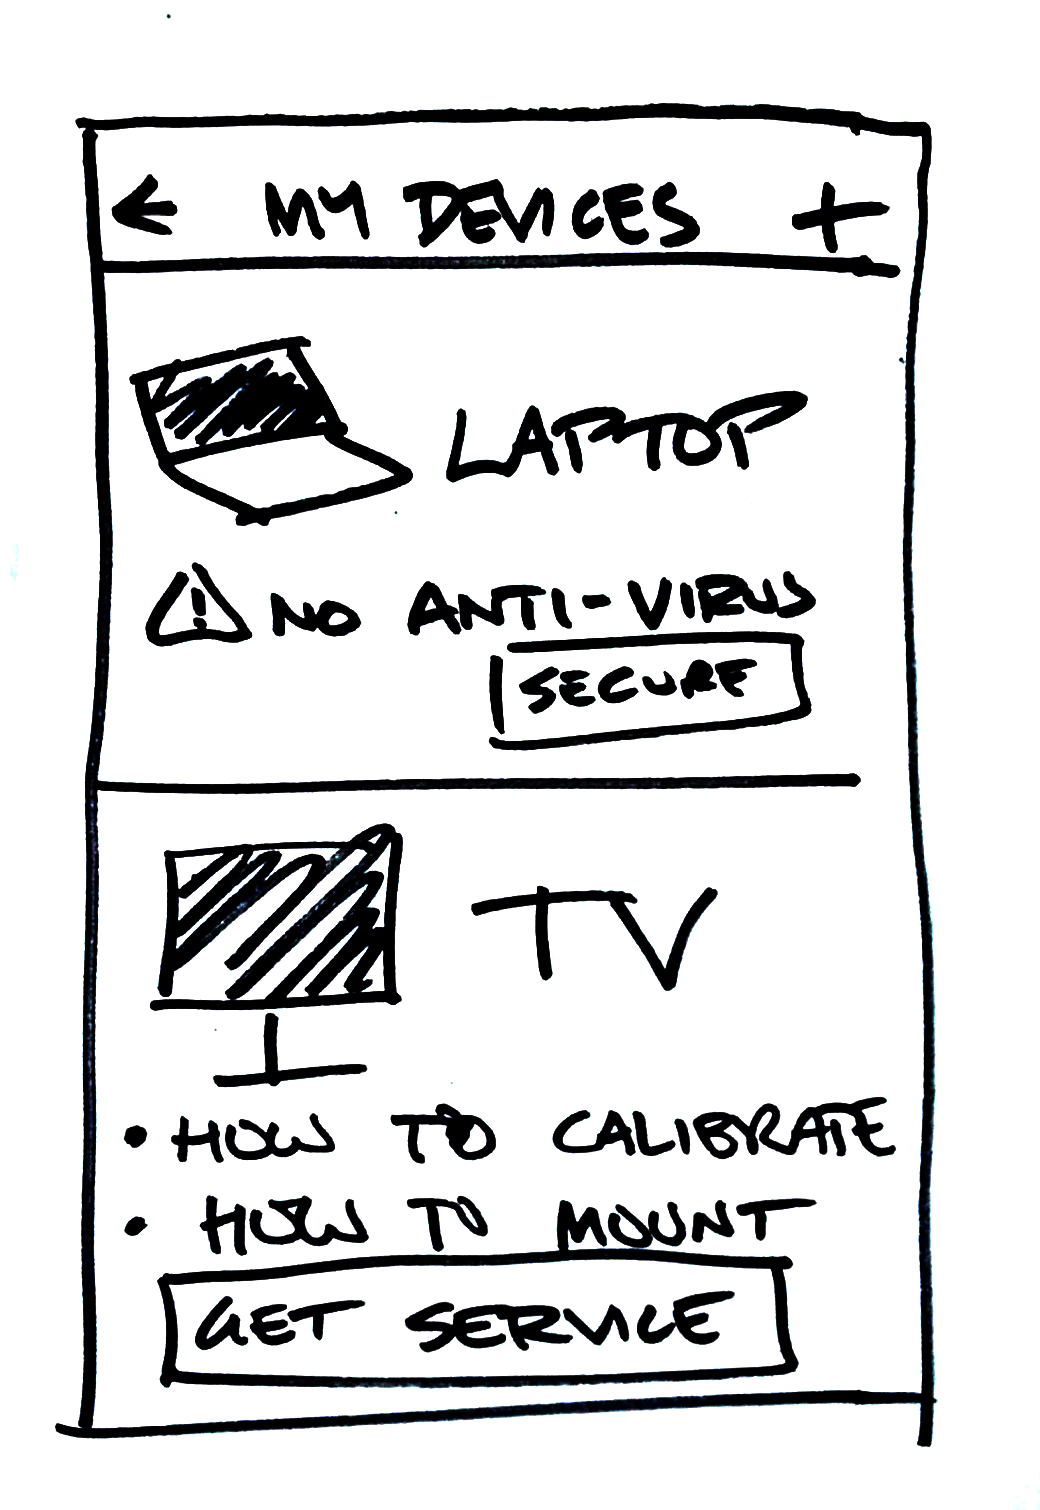 ← MY DEVICES +
LAPTOP
! NO ANTI-VIRUS
SECURE
TV
• HOW TO CALIBRATE
• HOW TO MOUNT
GET SERVICE